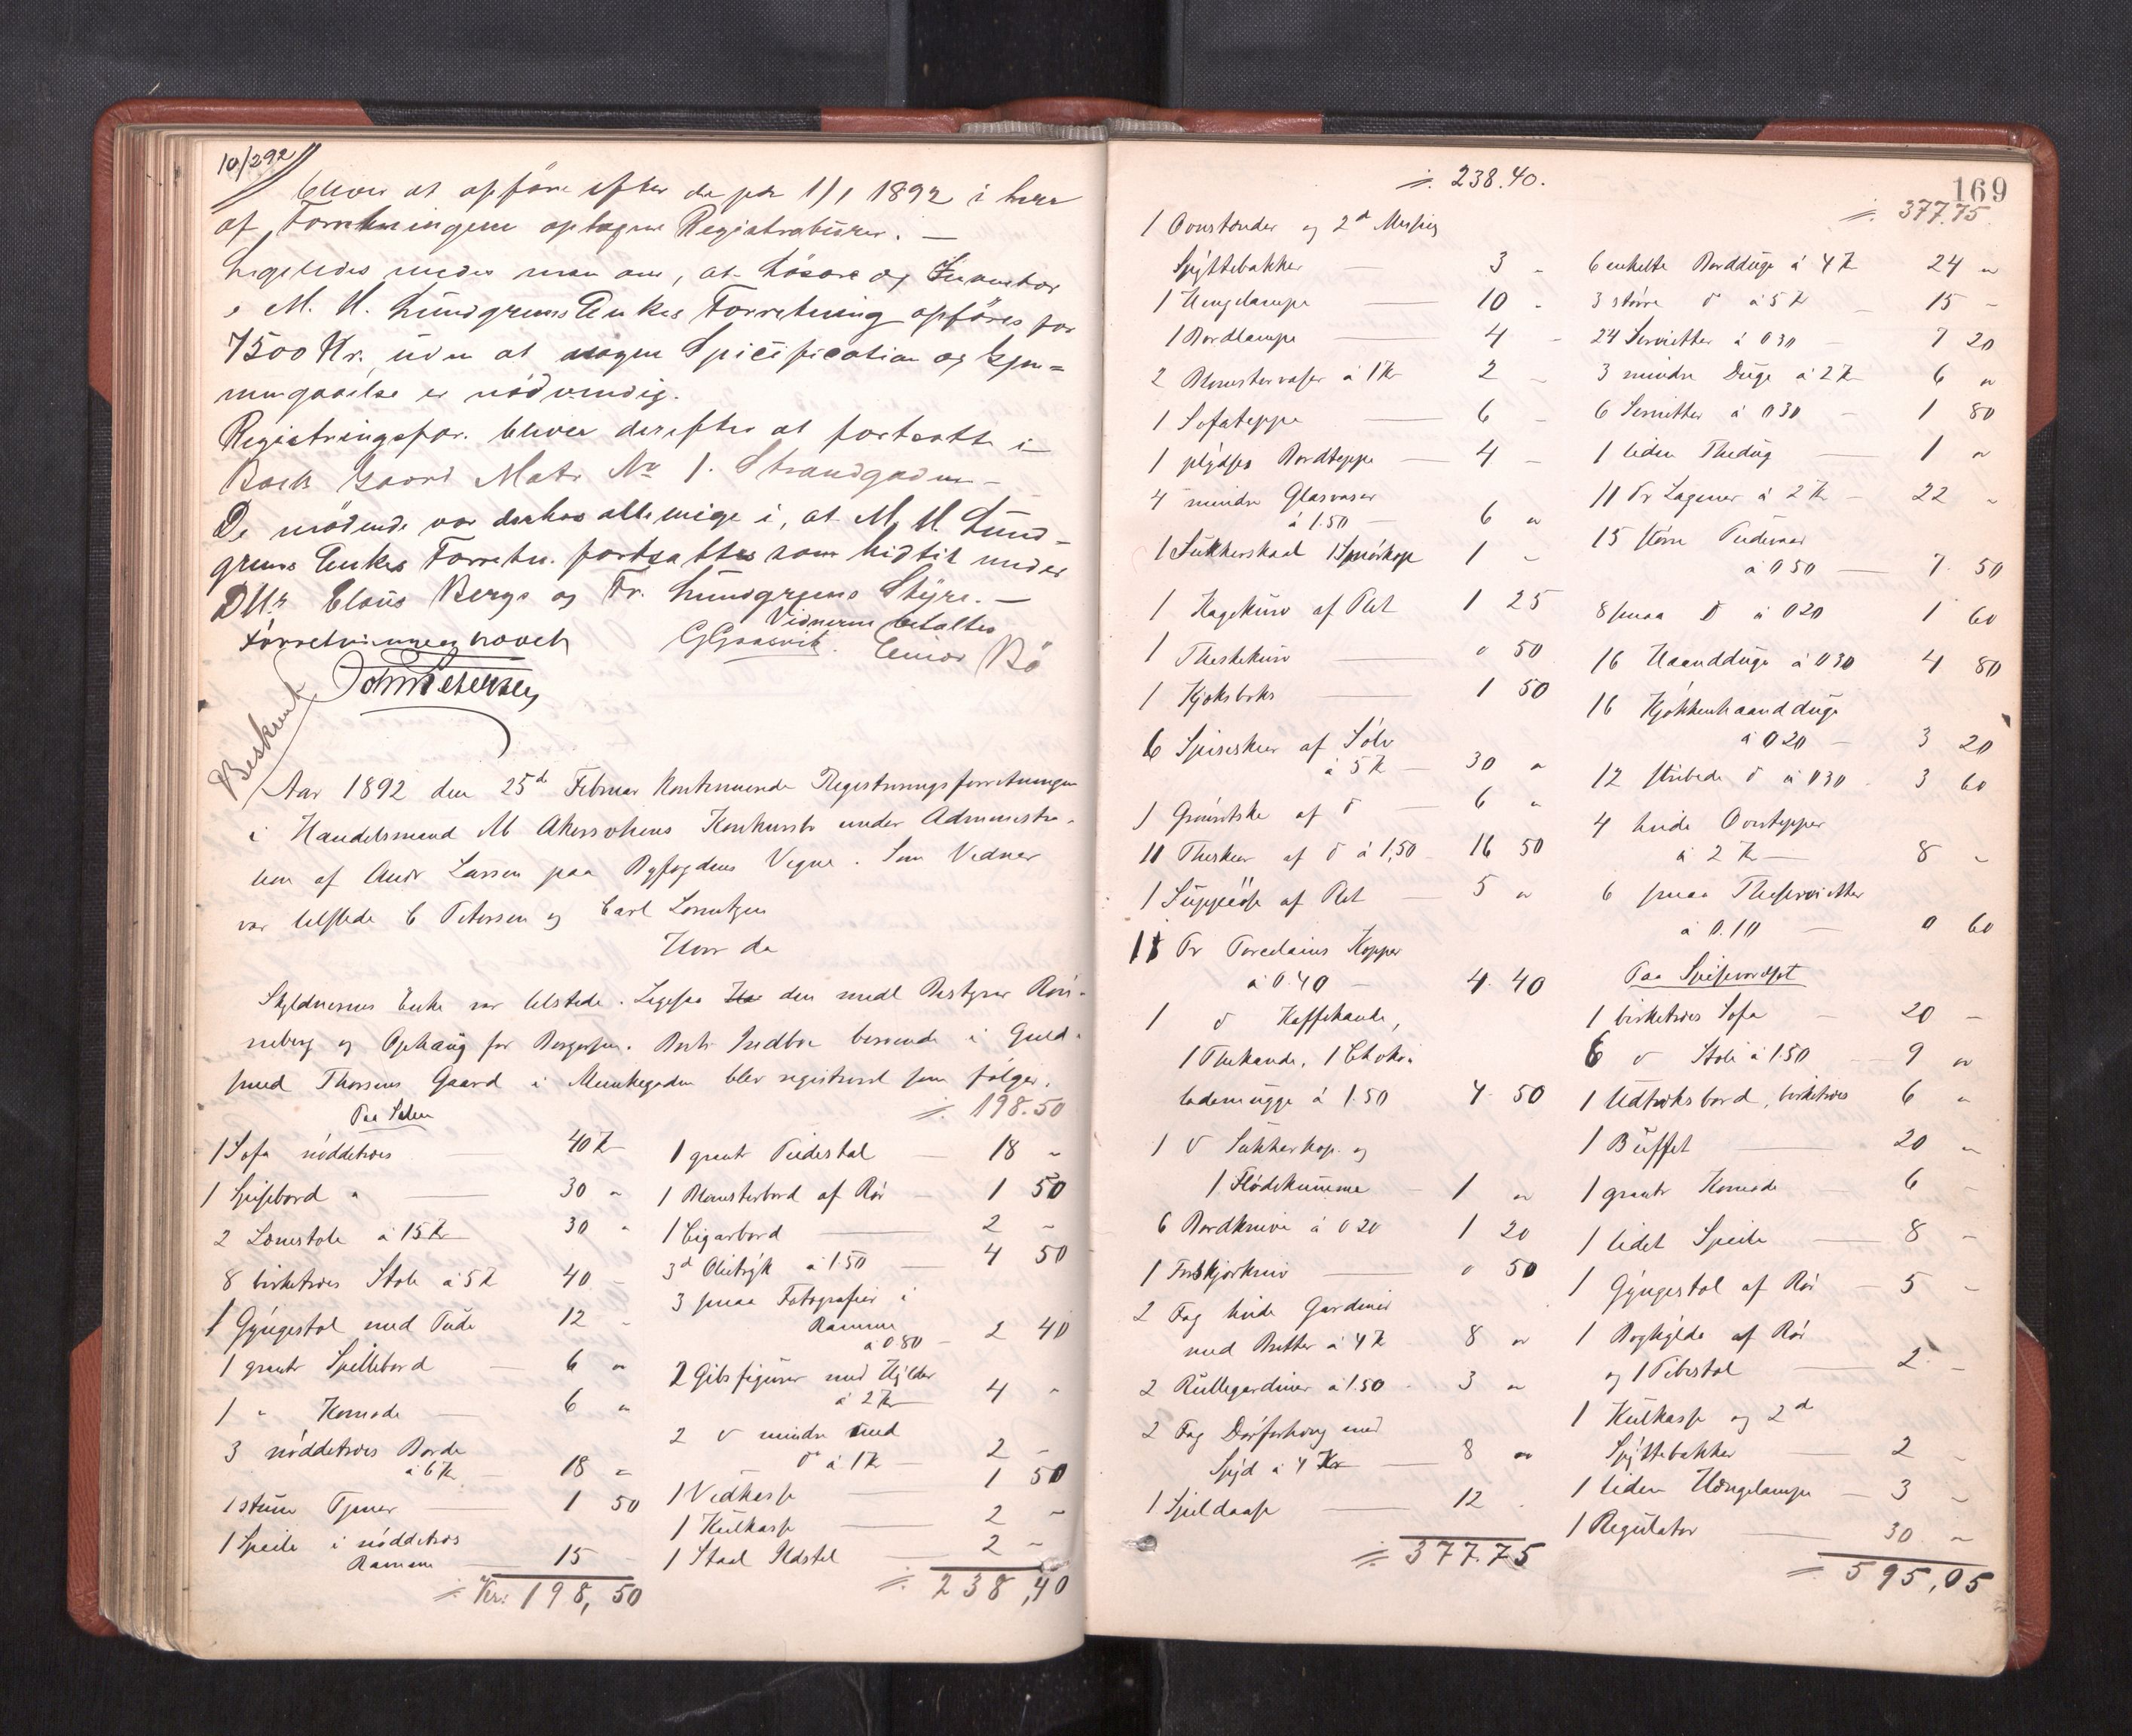 10/2 92
bliver at opføre efter de pr 1/1 1892 i hver
af Forretningerne optagne Registraturer. —
Ligeledes enedes man om, at Løsøre og Inventar
i M. H. Lundgrens Enkes Forretning opføres for
7500 Kr. uden at nogen Specification og Gjen=
nemgaaelse er nødvendig.
Registringsfor. bliver derefter at fortsætte i
Gaard Matr No 1. Strandgaden –
De mødende var derhos alle enige i, at M. H. Lund-
grens Enkes Forretn. fortsattes som hidtil under
DHr Claus Bergs og Fr. Lundgrens Styre. —
Vidnerne betaltes
Forretningen hævet
John Petersen
Einar Bø
Beskrevet
Aar 1892 den 25de Februar kontinuerede Registreringsforretningen
i Handelsmand M Konkursbo under Administra-
tion af Andr Larsen paa Byfogdens Vegne. Som Vidner
var tilstede C Petersen og Carl Lorentzen
Hvor da
Skyldnerens Enke var tilstede. Ligesaa den medl Bestyrer
og for Borgersen. Boets Indbo beroende i Guld-
smed Thorsens Gaard i Munkegaden blev registreret som følger.
Paa Salen
÷ 198.50
1 Sofa nøddetræes — 40 Kr
1 Spisebord " — 30 "
2 Lænestole à 15 Kr 30 "
8 birketræes Stole à 5 Kr 40 –
1 Gyngestol med Pude 12 –
1 Spillebord — 6 "
1 " Komode — 6 "
3 nøddetræes Borde
à 6 Kr. – 18 "
1 stum Tjener — 1 50
1 Speile i nøddetræs
Ramme — 15
÷ Kr: 198,50
1 Piedestal — 18 "
1 Blomsterbord af Rør — 1 50
1 Cigarbord — 2 –
3 d Olietryk à 1.50 — 4 50
3 smaa Fotografier i
Ramme
à 0.80 – 2 40
2 Gibsfigurer med Hylder
à 2 Kr 4 "
2 d mindre med
d à 1 Kr — 2 –
1 Vedkasse — 1 50
1 Kulkasse — 2 –
1 Staal Ildstel — 2 –
÷ 238,40
169
÷ 238.40.
1 Ovnstænder og 2 d Messing
Spyttebakker — 3 "
1 Hengelampe — 10 "
1 Bordlampe — 4 –
2 Blomstervaser à 1 Kr 2 –
1 Sofateppe — 6 –
1 plydses Bordteppe — 4 –
4 mindre Glasvaser
à 1.50 — 6 "
1 Sukkerskaal 1 Smørkop 1 –
1 Kagekurv af Plet 1 25
1 Theskekurv — 0 50
1 Kjeksboks — 1 50
6 Spiseskeer af Sølv
à 5 Kr — 30 "
1 Grødske af d — 6 "
11 Theskeer af d à 1,50 16 50
1 Suppeøse af Plet — 5 "
11 Pr Porcelains Kopper
à 0.40 — 4. 40
1 d Kaffekande,
1 Thekande, 1 Choko-
lademugge à 1.50 4 50
1 d Sukkerkop og
1 Flødekumme — 1 "
6 Bordknive à 0 20 1 20
1 Forskjærkniv — 0 50
2 Fag hvide Gardiner
med Bretter à 4 Kr 8 "
2 Rullegardiner à 1.50 – 3 "
2 Fag Dørforheng med
Spyd à 4 Kr — 8 "
1 — 12 .
÷ 377.75
÷ 377.75
6 enkelte Borddüge à 4 Kr 24 "
3 større d à 5 Kr — 15 –
24 Servietter à 0 30 – 7 20
3 mindre Düge à 2 Kr 6 "
6 Servietter à 0 30 – 1 80
1 liden Thedug — 1 "
11 Pr Lagener à 2 Kr — 22 "
15 større Pudevaar
à 0 50 — 7. 50
8 smaa d à 0 20 1 60
16 Haandduge à 0 30 4 80
16 Kjøkkenhaandduge
à 0 20 — 3 20
12 stribede d à 0 30 . 3 60
4 hvide Overtepper
à 2 Kr — 8 "
6 smaa Theservietter
à 0.10 — 0 60
Paa Spiseværelset
1 birketræes Sofa — 20 –
6 d Stole à 1.50 — 9 "
1 Udtræksbord, birketræes 6 "
1 Büffet — 20 "
1 Komode — 6 –
1 lidet Speile — 8 –
1 Gyngestol af Rør — 5 –
1 Boghylde af Rør
og 1 Pibestol — 2 –
1 Kulkasse og 2 d
Spyttebakker — 2 –
1 liden Hængelampe — 3 –
1 Regulator — 30 –
÷ 595,05